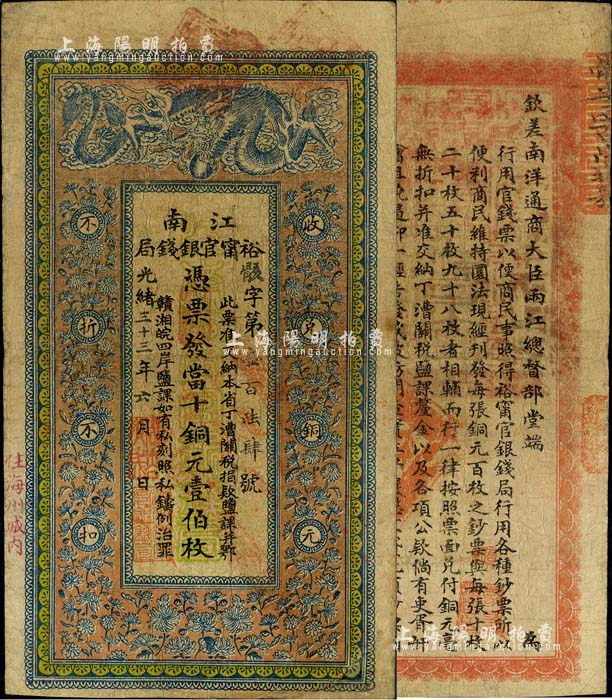 上海陽明拍賣
www.yangmingauction.com
江南
裕甯官銀錢局
字第
百
肆號
憑票發當十銅元壹伯枚
此票准
納本省丁漕關稅捐款鹽課并鄂
贛湘皖四岸鹽課如有私刻照私鑄例治罪
光緒三十三年六月
日
收兌銅元
不折不扣
住海州城內
上海陽明拍賣
www.yangmingauction.com
上海陽明拍賣
www.yangmingauction.com
欽差南洋通商大臣兩江總督部堂端
為
行用官錢票以便商民事照得裕甯官銀錢局行用各種鈔票所以
便利商民維持圜法現經刊發每張銅元百枚之鈔票與每張十枚
二十枚五十枚九十八枚者相輔而行一律按照票面兌付銅元
無折扣并准交納丁漕關稅鹽課釐金以及各項公款倘有吏胥